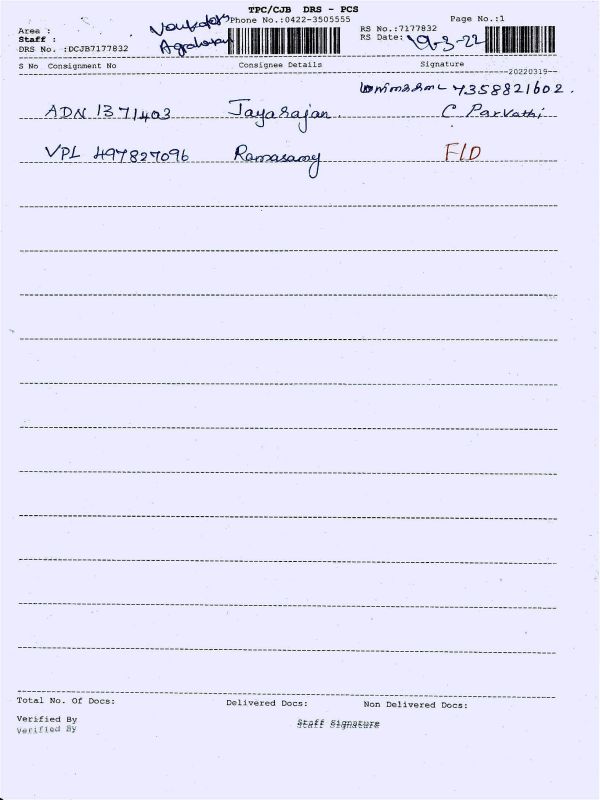 TPC/CJB DRS - PCS
Area :
Phone No.:0422-3505555
Page No.:1
Staff :
Agraharam
RS No.:7177832
DRS No. :DCJB7177832
RS Date: 19-3-22
S No Consignment No Consignee Details Signature
20220319
7358821602.
ADN 1371403 Jayarajan. C Parvathi
VPL 497827096 Ramasamy F/D
Total No. Of Docs: Delivered Docs: Non Delivered Docs:
Verified By Staff Signature
Verified By Staff Signature